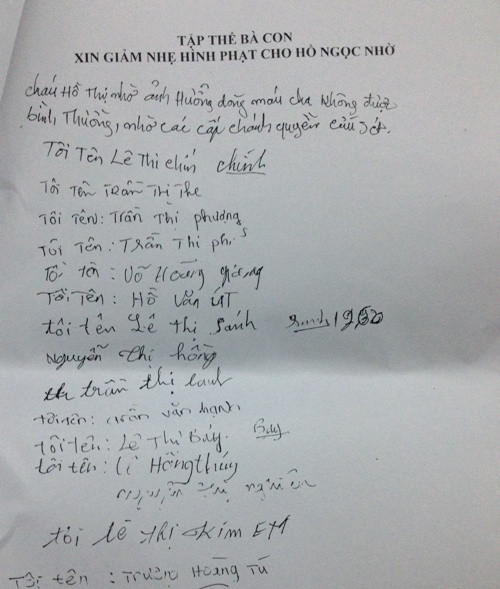 TẬP THỂ BÀ CON
XIN GIẢM NHẸ HÌNH PHẠT CHO HỒ NGỌC NHỜ
cháu Hồ Thị nhờ ảnh Hưởng dòng máu cha Không được
bình Thường, nhờ các cấp chánh quyền cứu xét.
Tôi Tên Lê Thị chín chính
Tôi Tên Trần Thị The
Tôi Tên: Trần Thị phượng
Tôi Tên: Trần Thị
Tôi tên: Võ Hoàng
Tôi Tên: Hồ Văn ÚT
tôi tên Lê thị Sánh Sanh 1950
Nguyễn thị hồng
trần thị
tôi tên: trần văn hạnh
tôi tên: Lê Thị Bảy. Bảy
tôi tên: Hồng thúy
Nguyễn
tôi lê thị Kim EM
Tôi tên: Trương Hoàng Tú